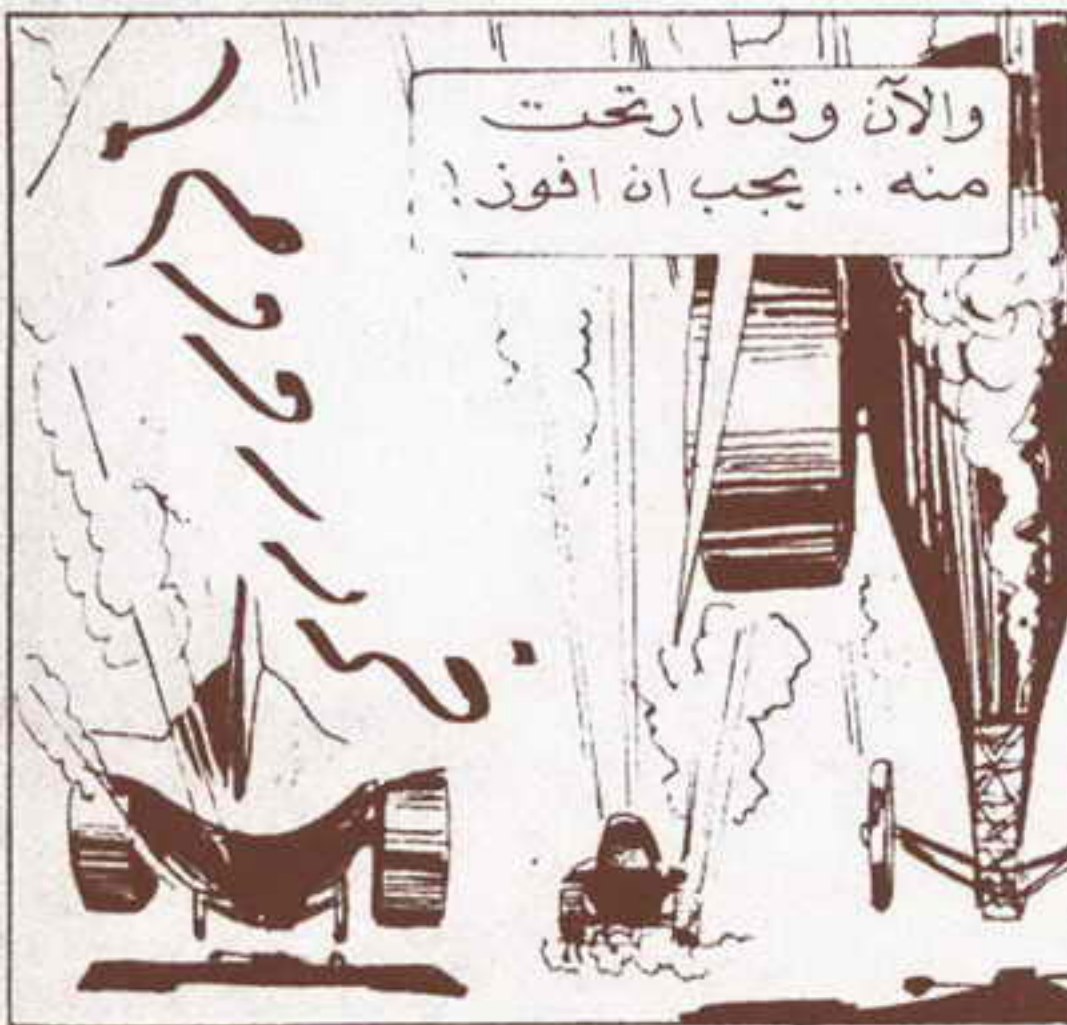 والآن وقد ارتحت
منه .. يجب ان افوز !